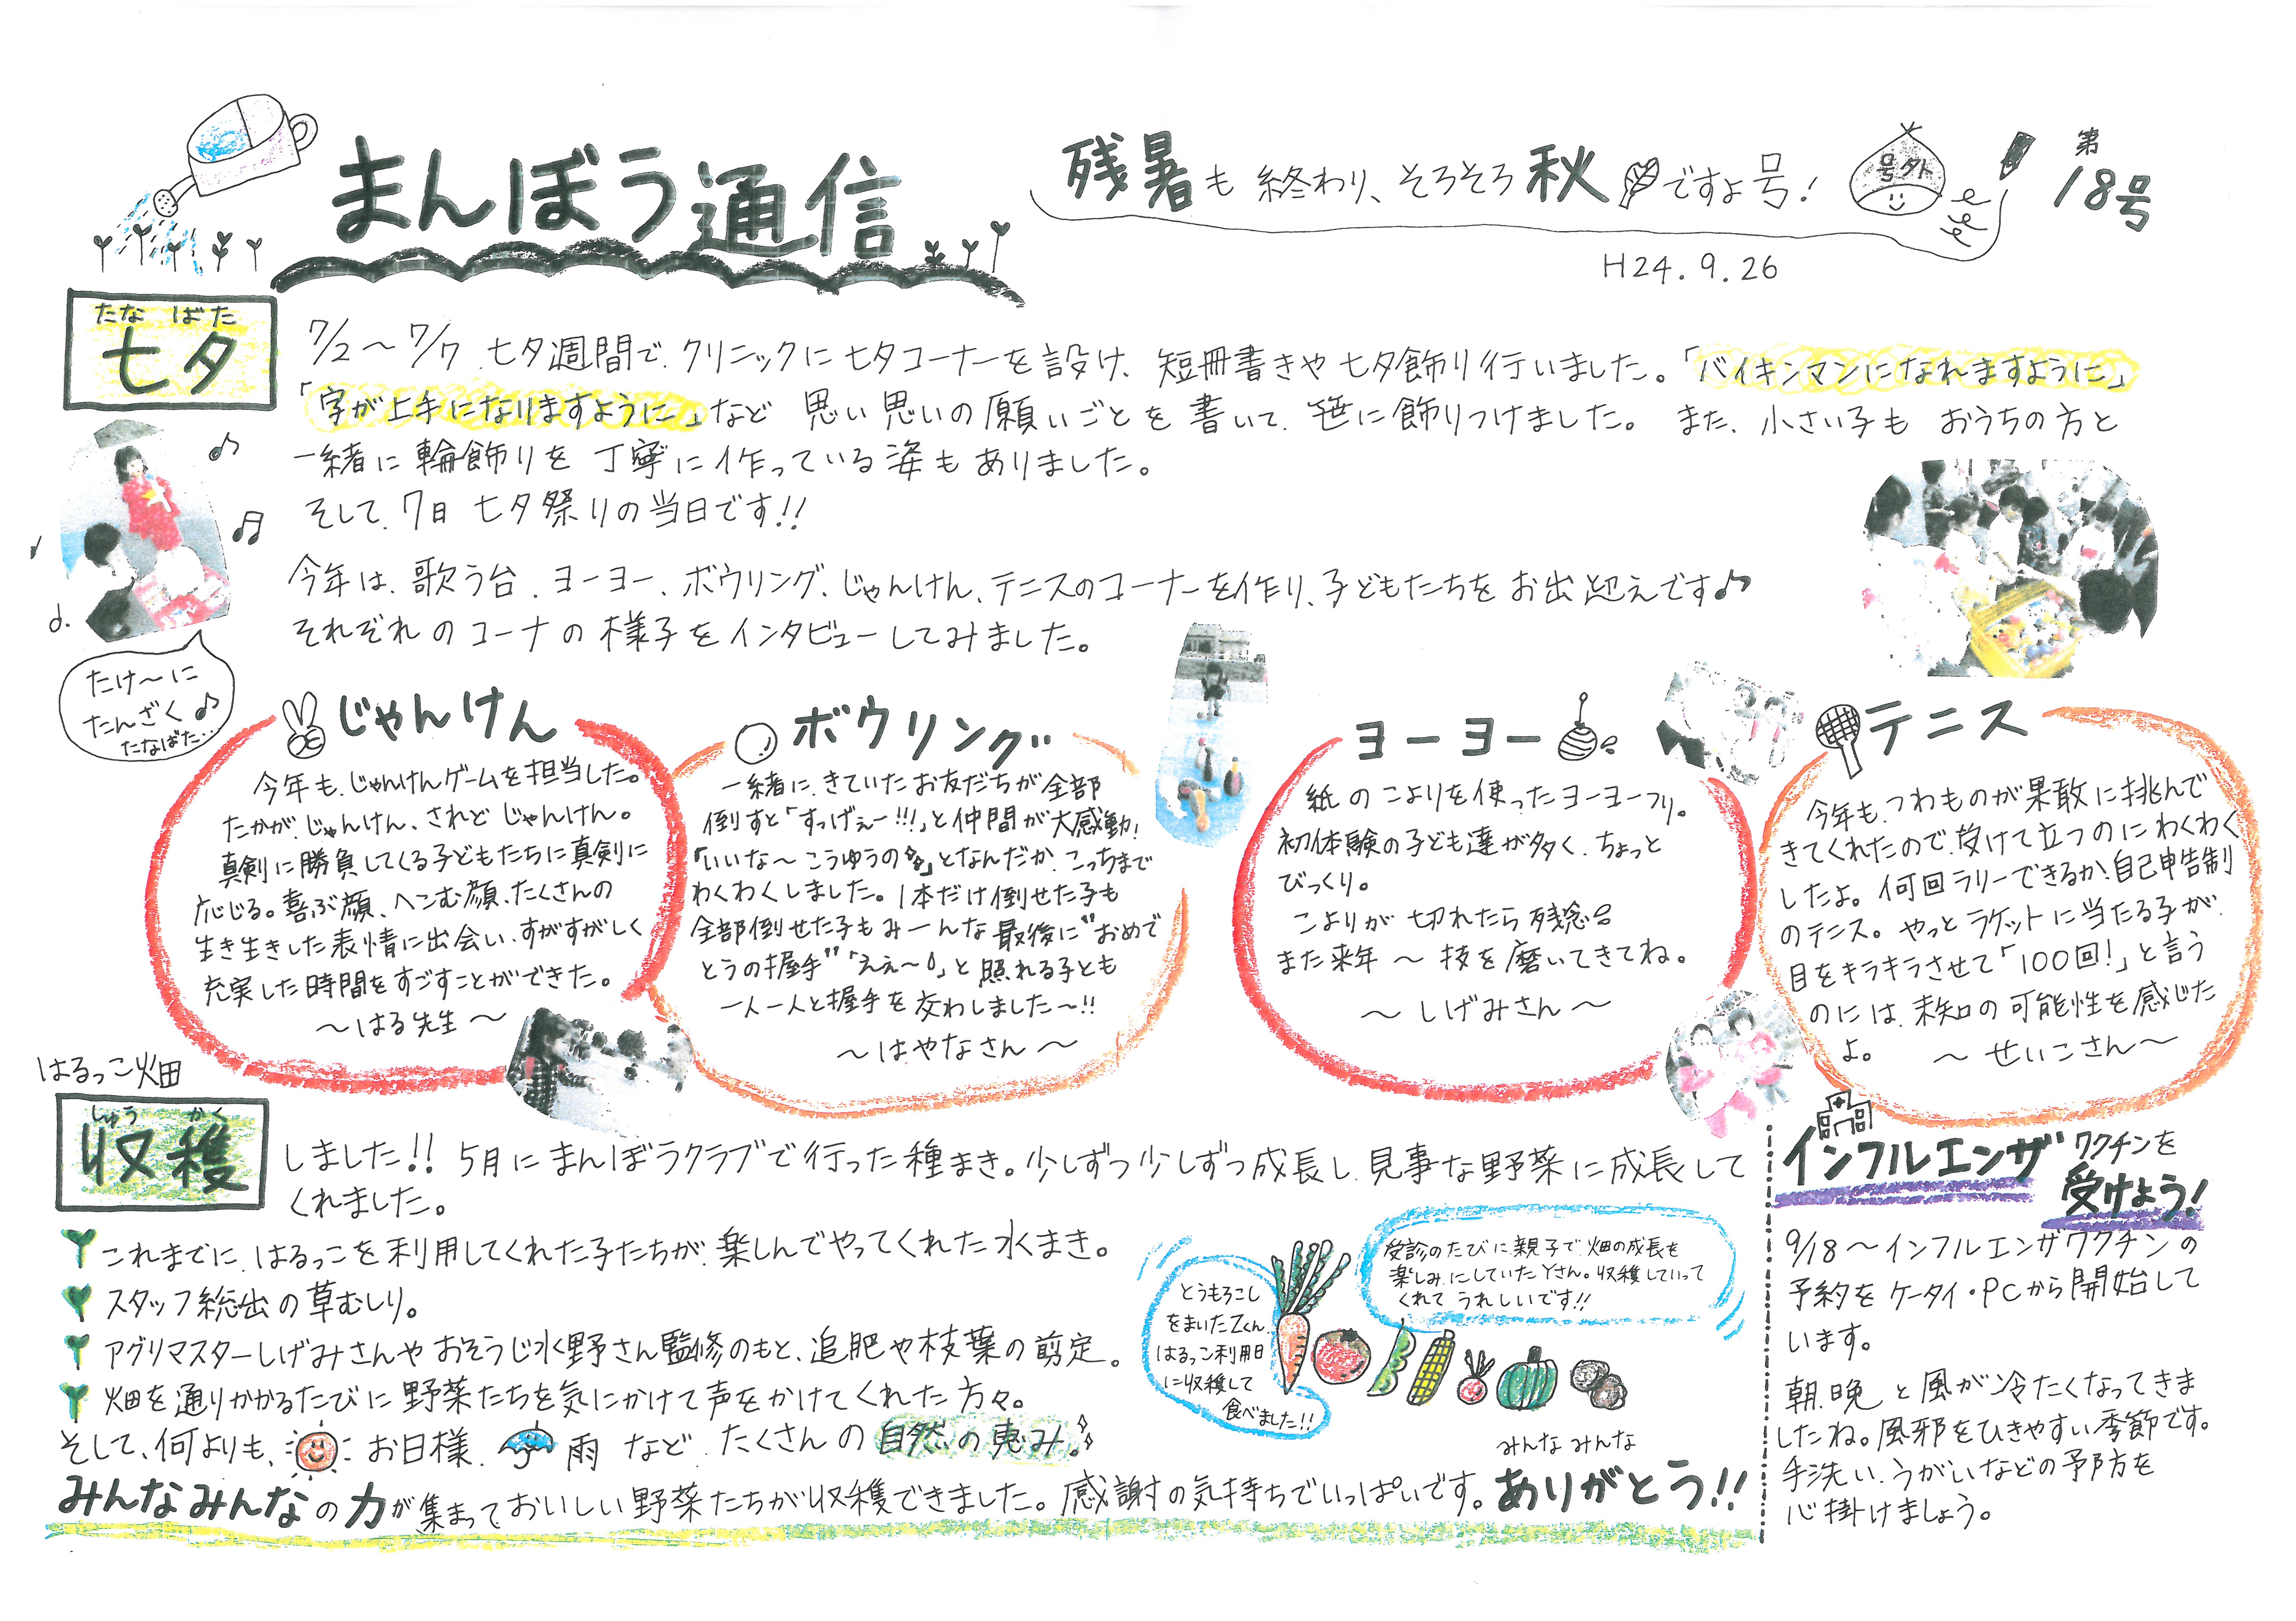 まんぼう通信
残暑も終わり、そろそろ秋ですよ号!
号外
第18号
H24.9.26
たなばた
七夕
7/2~7/7、七夕週間で、クリニックに七夕コーナーを設け、短冊書きや七夕飾り行いました。「バイキンマンになれますように」
「字が上手になりますように」など 思い思いの願いごとを書いて、笹に飾りつけました。また、小さい子も おうちの方と
一緒に輪飾りを丁寧に作っている姿もありました。
そして、7日 七夕祭りの当日です!!
今年は、歌う台、ヨーヨー、ボウリング、じゃんけん、テニスのコーナーを作り、子どもたちをお出迎えです♪
それぞれのコーナの様子をインタビューしてみました。
たけ~に
たんざく♪
たなばた…
じゃんけん
今年も、じゃんけんゲームを担当した。
たかが、じゃんけん、されど じゃんけん。
真剣に勝負してくる子どもたちに真剣に
応じる。喜ぶ顔、へこむ顔、たくさんの
生き生きした表情に出会い、すがすがしく
充実した時間をすごすことができた。
~はる先生~
ボウリング
一緒に、きていたお友だちが全部
倒すと「すっげぇー!!!」と仲間が大感動!
「いいな~ こうゆうの」となんだか、こっちまで
わくわくしました。1本だけ倒せた子も
全部倒せた子もみーんな最後に"おめで
とうの握手"「ええ~」と照れる子とも
一人一人と握手を交わしました~!!
~はやなさん~
ヨーヨー
紙のこよりを使ったヨーヨーつり。
初体験の子ども達が多く、ちょっと
びっくり。
こよりが切れたら残念
また来年~技を磨いてきてね。
~しげみさん~
テニス
今年も、つわものが果敢に挑んで
きてくれたので、受けて立つのにわくわく
したよ。何回ラリーできるか、自己申告制
のテニス。やっとラケットに当たる子が、
目をキラキラさせて「100回!」と言う
のには、未知の可能性を感じた
よ。 ~せいこさん~
はるっこ畑
しゅうかく
収穫
しました!! 5月にまんぼうクラブで行った種まき。少しずつ少しずつ成長し、見事な野菜に成長して
くれました。
これまでに、はるっこを利用してくれた子たちが、楽しんでやってくれた水まき。
スタッフ総出の草むしり。
アグリマスターしげみさんやおそうじ水野さん監修のもと、追肥や枝葉の剪定。
畑を通りかかるたびに野菜たちを気にかけて声をかけてくれた方々。
そして、何よりも、お日様、雨 など、たくさんの自然の恵み。
みんなみんなの力が集まっておいしい野菜たちが収穫できました。感謝の気持ちでいっぱいです。
みんな みんな
ありがとう!!
とうもろこし
をまいたZくん
はるっこ利用日
に収穫して
食べました!!
受診のたびに、親子で、畑の成長を
楽しみにしていたYさん。収穫していって
くれて うれしいです!!
インフルエンザワクチンを
受けよう!
9/18~インフルエンザワクチンの
予約をケータイ・PCから開始して
います。
朝、晩と風が冷たくなってきま
したね。風邪をひきやすい季節です。
手洗い、うがいなどの予防を
心掛けましょう。